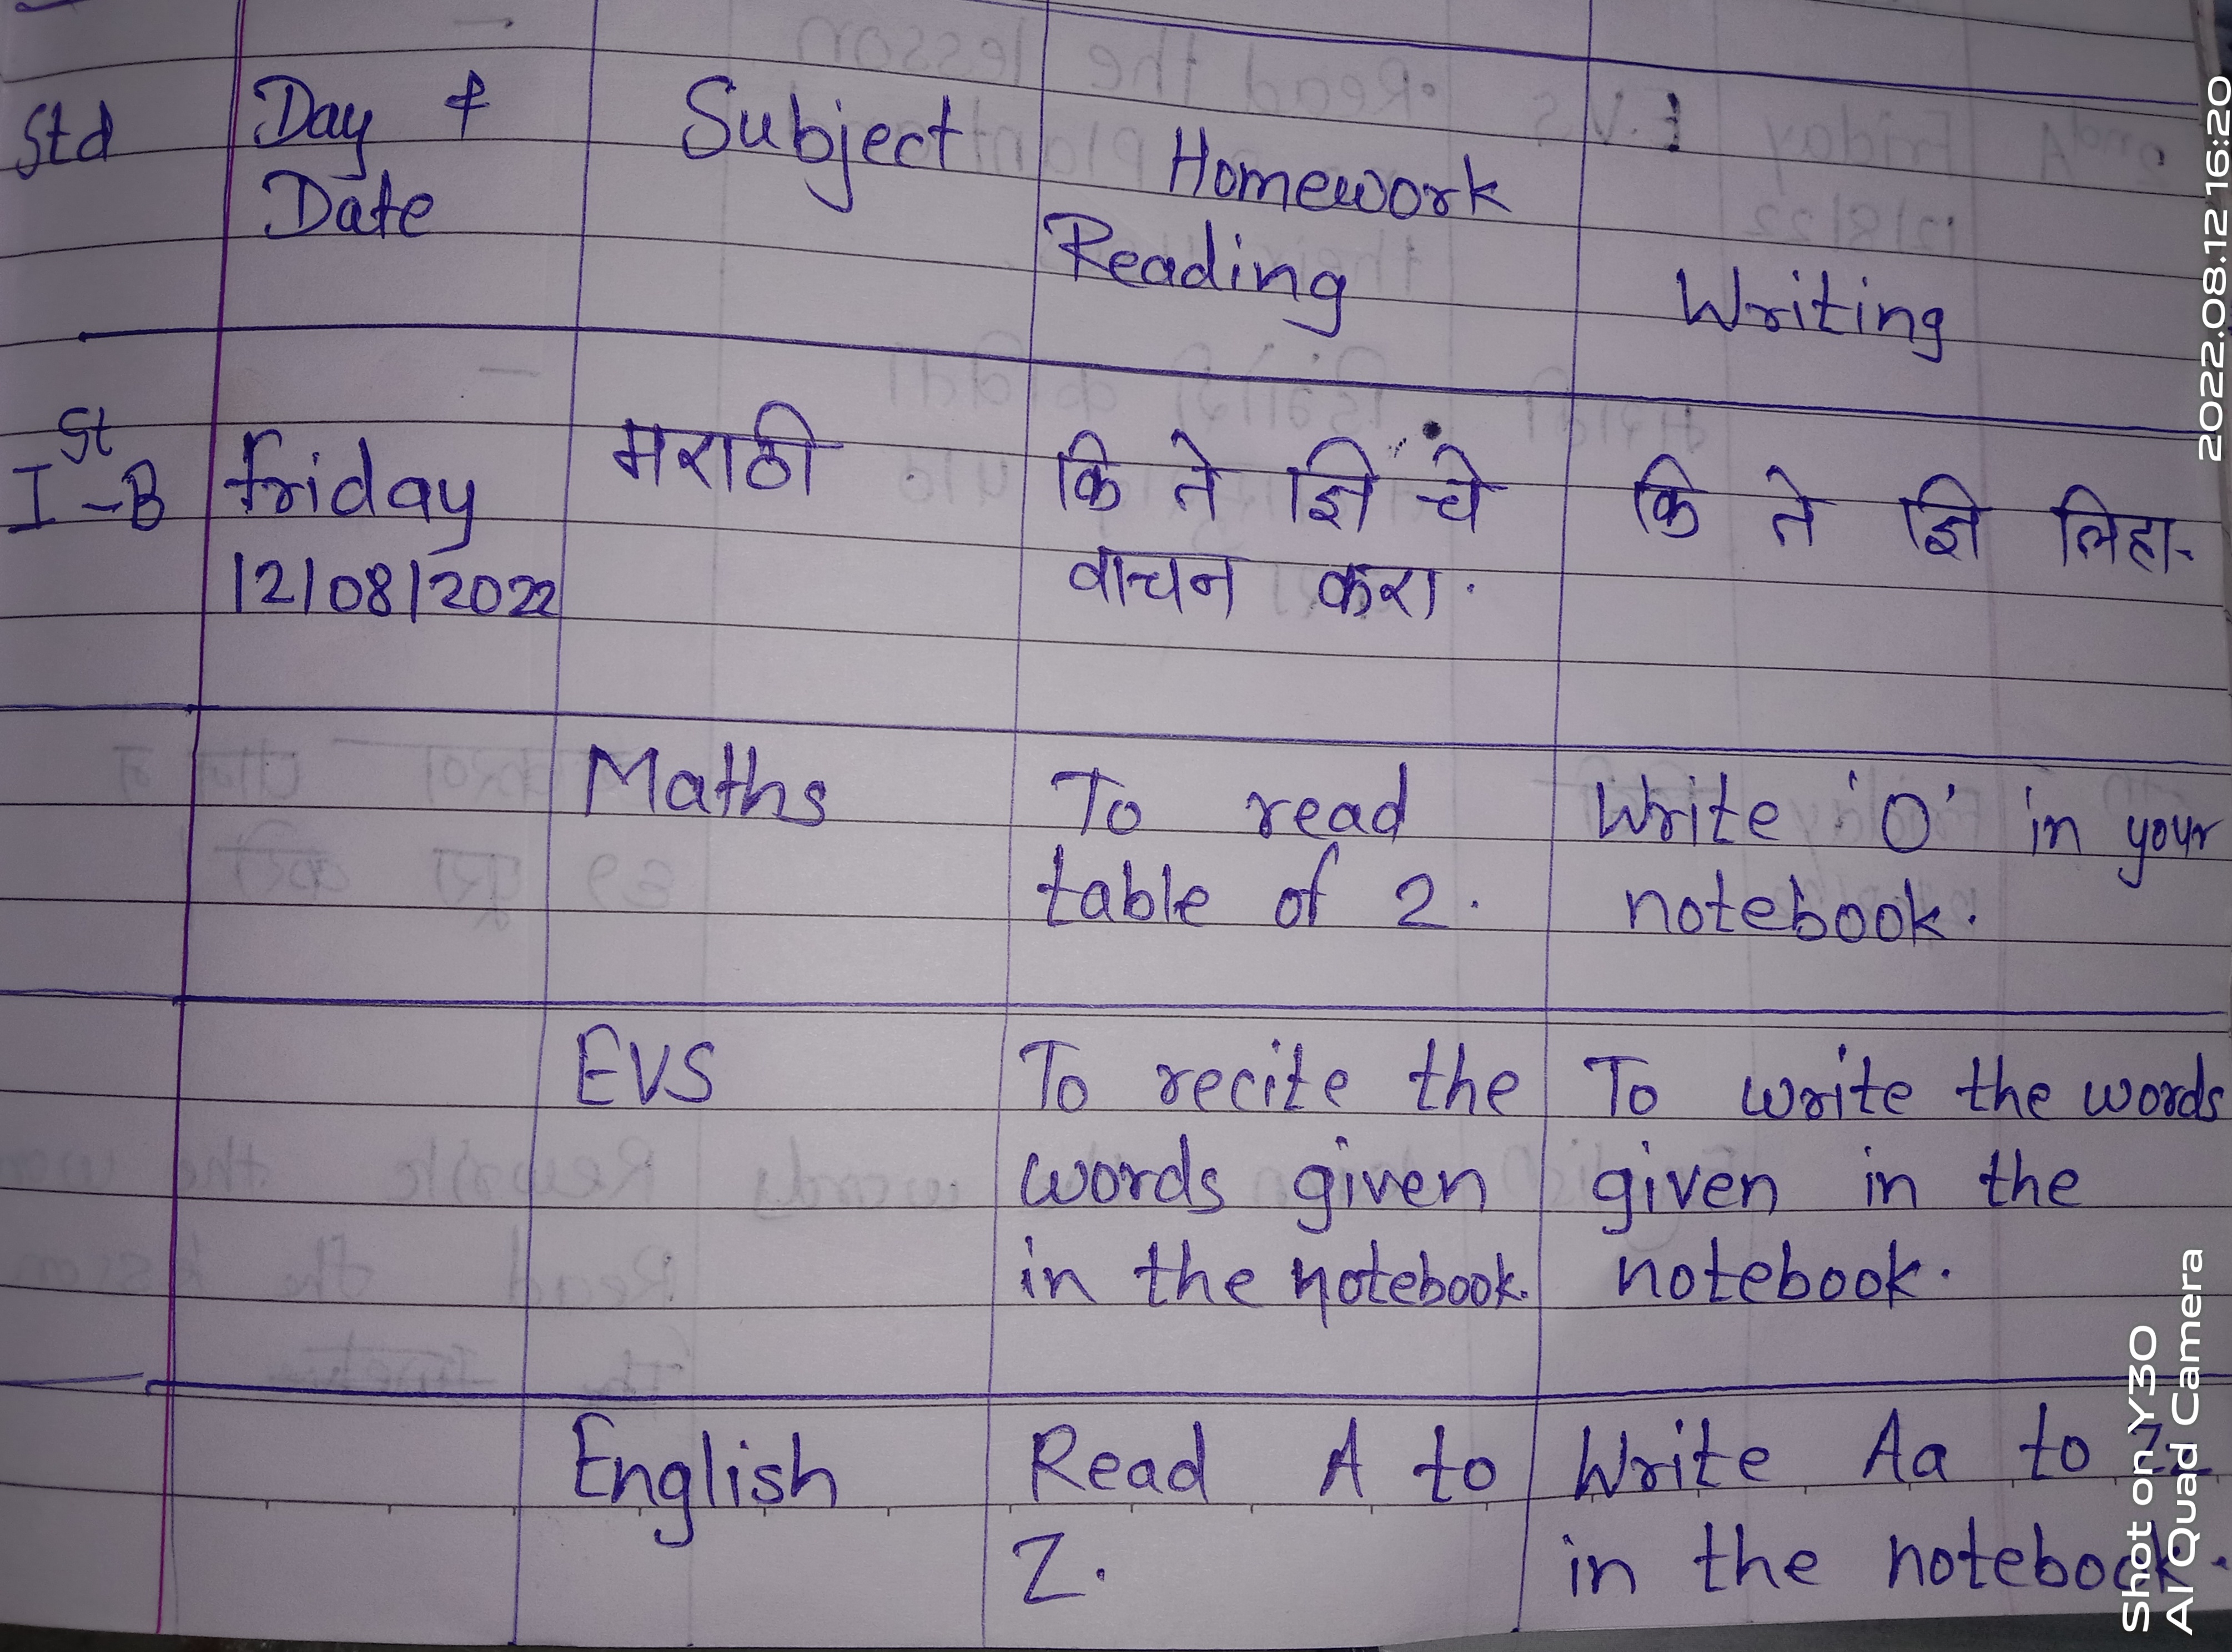 Std Day & Subject Homework
Date Reading Writing
Ist-B Friday मराठी कि ते ज्ञि चे कि ते ज्ञि लिहा.
12/08/2022 वाचन करा.
Maths To read Write '0' in your
table of 2. notebook.
EVS To recite the To write the words
words given given in the
in the notebook. notebook.
English Read A to Write Aa to Zz
Z. in the notebook.
2022.08.12 16:20
Shot on Y30
AI Quad Camera